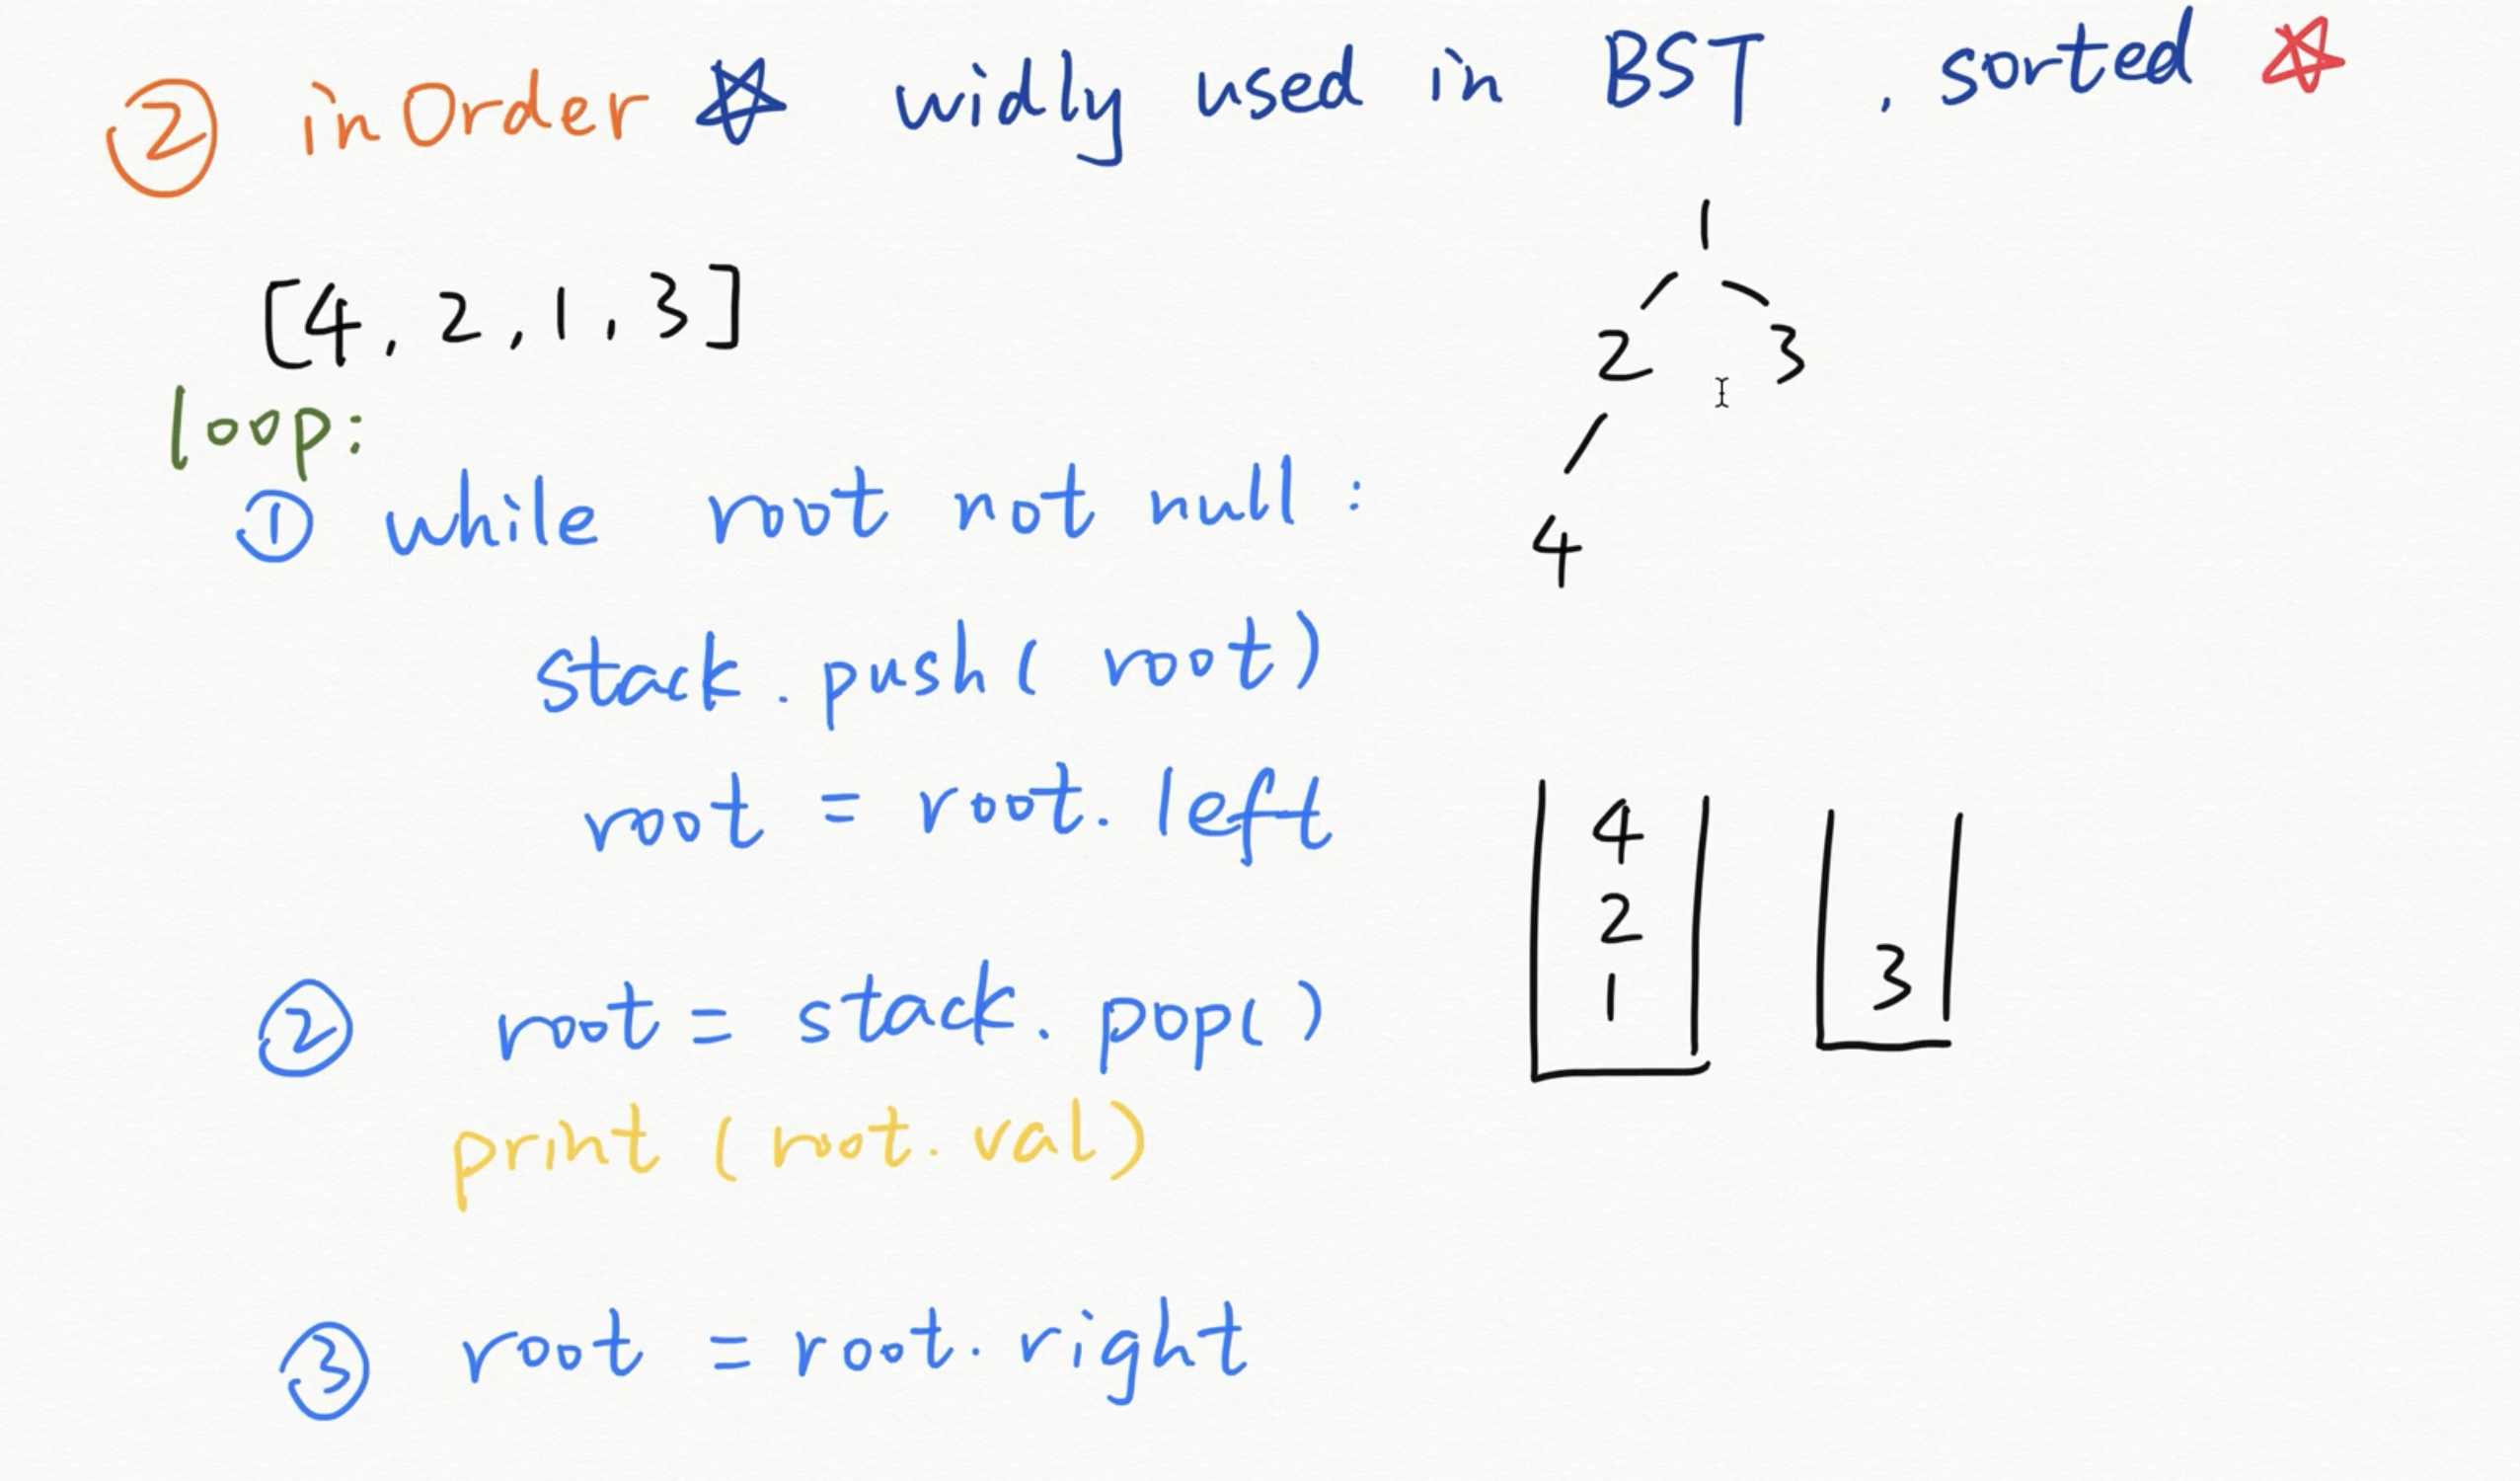 ② inOrder ☆ widly used in BST , sorted ☆
[4, 2, 1, 3]
1
2 3
4
loop:
① while root not null :
stack.push( root)
root = root.left
② root = stack.pop()
print (root.val)
③ root = root.right
4
2
1
3